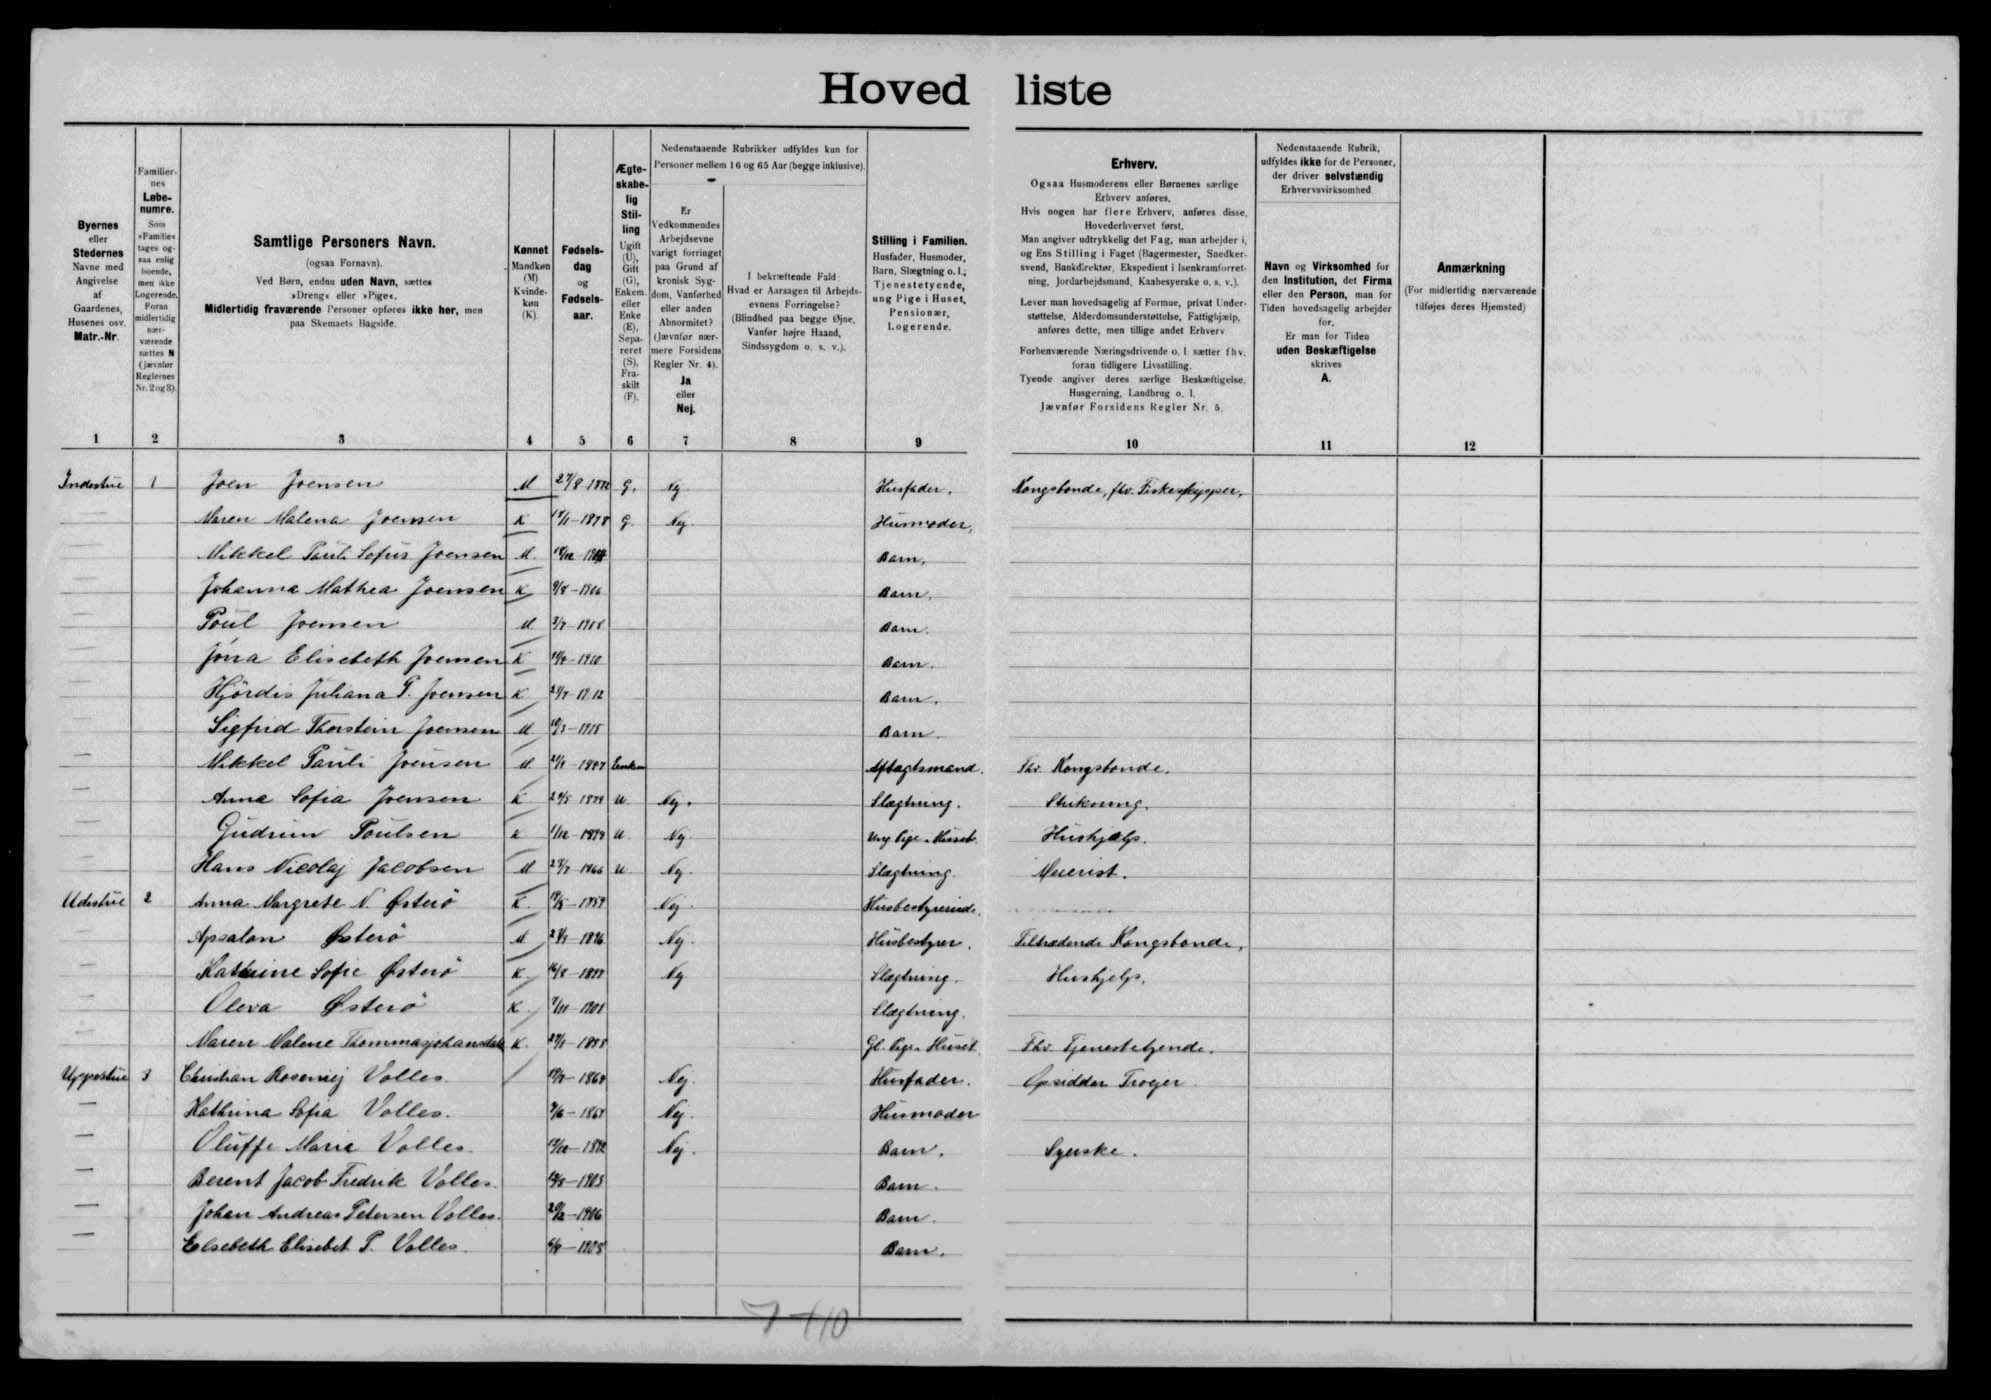 Hovedliste
Byernes
eller
Stedernes
Navne med
Angivelse
af
Gaardenes,
Husenes osv.
Matr.-Nr.
Familier-
nes
Løbe-
numre.
Som
»Familie«
tages og-
saa enlig
boende,
men ikke
Logerende.
Foran
midlertidig
nær-
værende
sættes N
(jævnfør
Reglernes
Nr. 2 og 3).
Samtlige Personers Navn.
(ogsaa Fornavn).
Ved Børn, endnu uden Navn, sættes
»Dreng« eller »Pige«.
Midlertidig fraværende Personer opføres ikke her, men
paa Skemaets Bagside.
Kønnet
Mandkøn
(M)
Kvinde-
køn
(K).
Fødsels-
dag
og
Fødsels-
aar.
Ægte-
skabe-
lig
Stil-
ling
Ugift
(U),
Gift
(G),
Enkem.
eller
Enke
(E),
Sepa-
reret
(S),
Fra-
skilt
(F).
Nedenstaaende Rubrikker udfyldes kun for
Personer mellem 16 og 65 Aar (begge inklusive).
Er
Vedkommendes
Arbejdsevne
varigt forringet
paa Grund af
kronisk Syg-
dom, Vanførhed
eller anden
Abnormitet?
(Jævnfør nær-
mere Forsidens
Regler Nr. 4).
Ja
eller
Nej.
I bekræftende Fald:
Hvad er Aarsagen til Arbejds-
evnens Forringelse?
(Blindhed paa begge Øjne,
Vanfør højre Haand,
Sindssygdom o. s. v.).
Stilling i Familien.
Husfader, Husmoder,
Barn, Slægtning o. l.;
Tjenestetyende,
ung Pige i Huset,
Pensionær,
Logerende.
Erhverv.
Ogsaa Husmoderens eller Børnenes særlige
Erhverv anføres.
Hvis nogen har flere Erhverv, anføres disse,
Hovederhvervet først.
Man angiver udtrykkelig det Fag, man arbejder i,
og Ens Stilling i Faget (Bagermester, Snedker-
svend, Bankdirektør, Ekspedient i Isenkramforret-
ning, Jordarbejdsmand, Kaabesyerske o. s. v.).
Lever man hovedsagelig af Formue, privat Under-
støttelse, Alderdomsunderstøttelse, Fattighjælp,
anføres dette, men tillige andet Erhverv.
Forhenværende Næringsdrivende o. l. sætter fhv.
foran tidligere Livsstilling.
Tyende angiver deres særlige Beskæftigelse,
Husgerning, Landbrug o. l.
Jævnfør Forsidens Regler Nr. 5.
Nedenstaaende Rubrik,
udfyldes ikke for de Personer,
der driver selvstændig
Erhvervsvirksomhed
Navn og Virksomhed for
den Institution, det Firma
eller den Person, man for
Tiden hovedsagelig arbejder
for.
Er man for Tiden
uden Beskæftigelse
skrives
A.
Anmærkning
(For midlertidig nærværende
tilføjes deres Hjemsted)
1 2 3 4 5 6 7 8 9 10 11 12
Indestue 1 Joen Joensen M G. Nej Husfader. Kongsbonde, fhv. Fiskeskipper.
— Maren Malena Joensen K 1878 G. Nej. Husmoder.
— Mikkel Pauli Sofus Joensen M. Barn.
— Johanna Mathea Joensen K 1906 Barn.
— Poul Joensen M Barn.
— Jóna Elisebeth Joensen K 1910 Barn.
— Hjördis Juliana P. Joensen K 1912 Barn.
— Sigfrid Thorstein Joensen M 1915 Barn.
— Mikkel Pauli Joensen M. 1847 Aftægtsmand. Fhv. Kongsbonde.
— Anna Sofia Joensen K U. Nej. Slægtning. Strikning.
— Gudrun Poulsen K U. Nej Ung Pige i Huset Hushjælp.
— Hans Nicolaj Jacobsen M 1866 U. Nej. Slægtning. Meierist.
Udestue 2 Anna Margrete N. Österö K. Nej. Husbestyrerinde.
— Apsalon Österö M 1896 Nej. Husbestyrer. Tiltrædende Kongsbonde.
— Kathrine Sofie Österö K Nej Slægtning. Hushjelp.
— Oleva Österö K. Slægtning.
— Maren Malene K. Gl. Pige i Huset. Fhv. Tjenestetyende.
Uppestue 3 Christian Rosenvej Volles 1864 Nej. Husfader. Opsidder
— Kathrina Sofia Volles. Nej. Husmoder
— Oluffe Maria Volles. Nej. Barn. Syerske.
— Berent Jacob Fredrik Volles. 1903 Barn.
— Johan Andreas Petersen Volles. 1906 Barn.
— Elsebeth Elisebet P. Volles. 1908 Barn.
7+10